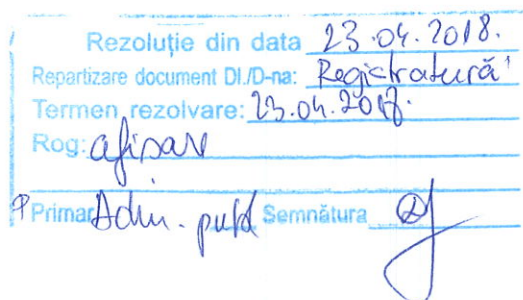 Rezoluție din data 23.04.2018.
Repartizare document Dl./D-na: Registratură
Termen rezolvare: 23.04.2018.
Rog: afișare
Primar Adm. publ Semnătura